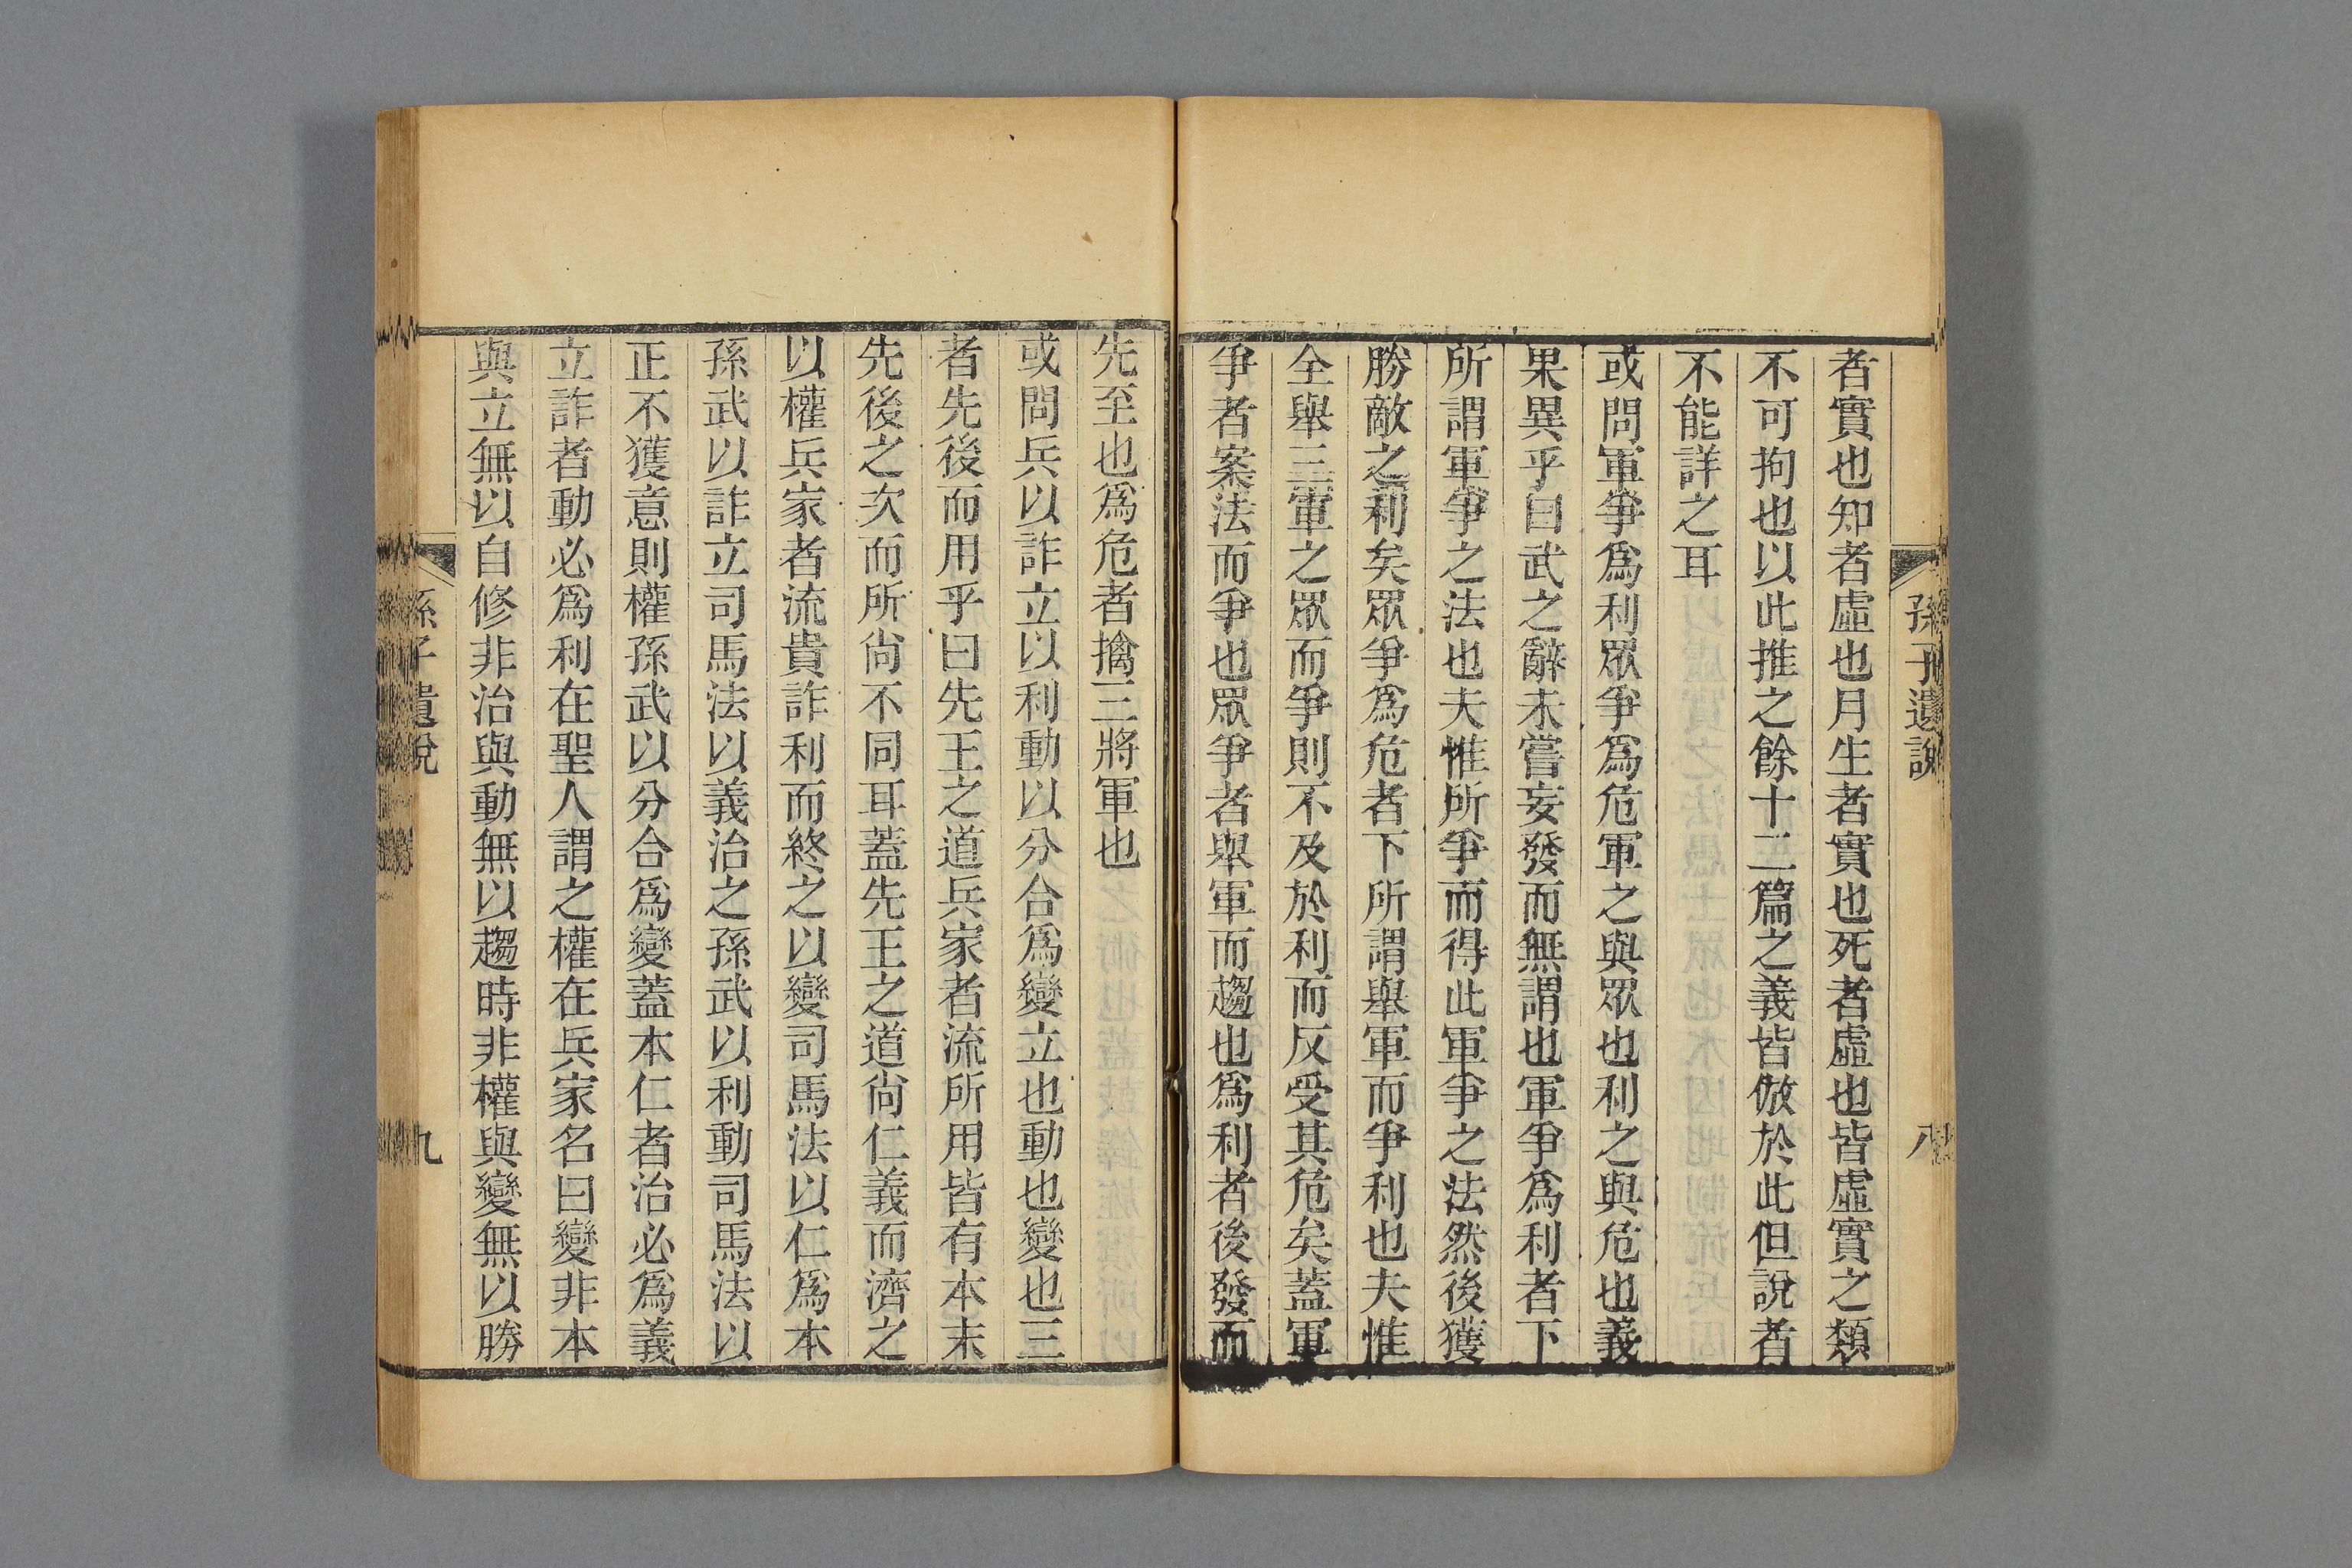 孫子遺說
八
者實也知者虛也月生者實也死者虛也皆虛實之類
不可拘也以此推之餘十二篇之義皆倣於此但說者
不能詳之耳
或問軍爭為利眾爭為危軍之與眾也利之與危也義
果異乎曰武之辭未嘗妄發而無謂也軍爭為利者下
所謂軍爭之法也夫惟所爭而得此軍爭之法然後獲
勝敵之利矣眾爭為危者下所謂舉軍而爭利也夫惟
全舉三軍之眾而爭則不及於利而反受其危矣蓋軍
爭者案法而爭也眾爭者舉軍而趨也為利者後發而
先至也為危者擒三將軍也
或問兵以詐立以利動以分合為變立也動也變也三
者先後而用乎曰先王之道兵家者流所用皆有本末
先後之次而所尚不同耳蓋先王之道尚仁義而濟之
以權兵家者流貴詐利而終之以變司馬法以仁為本
孫武以詐立司馬法以義治之孫武以利動司馬法以
正不獲意則權孫武以分合為變蓋本仁者治必為義
立詐者動必為利在聖人謂之權在兵家名曰變非本
與立無以自修非治與動無以趨時非權與變無以勝
孫子遺說
九